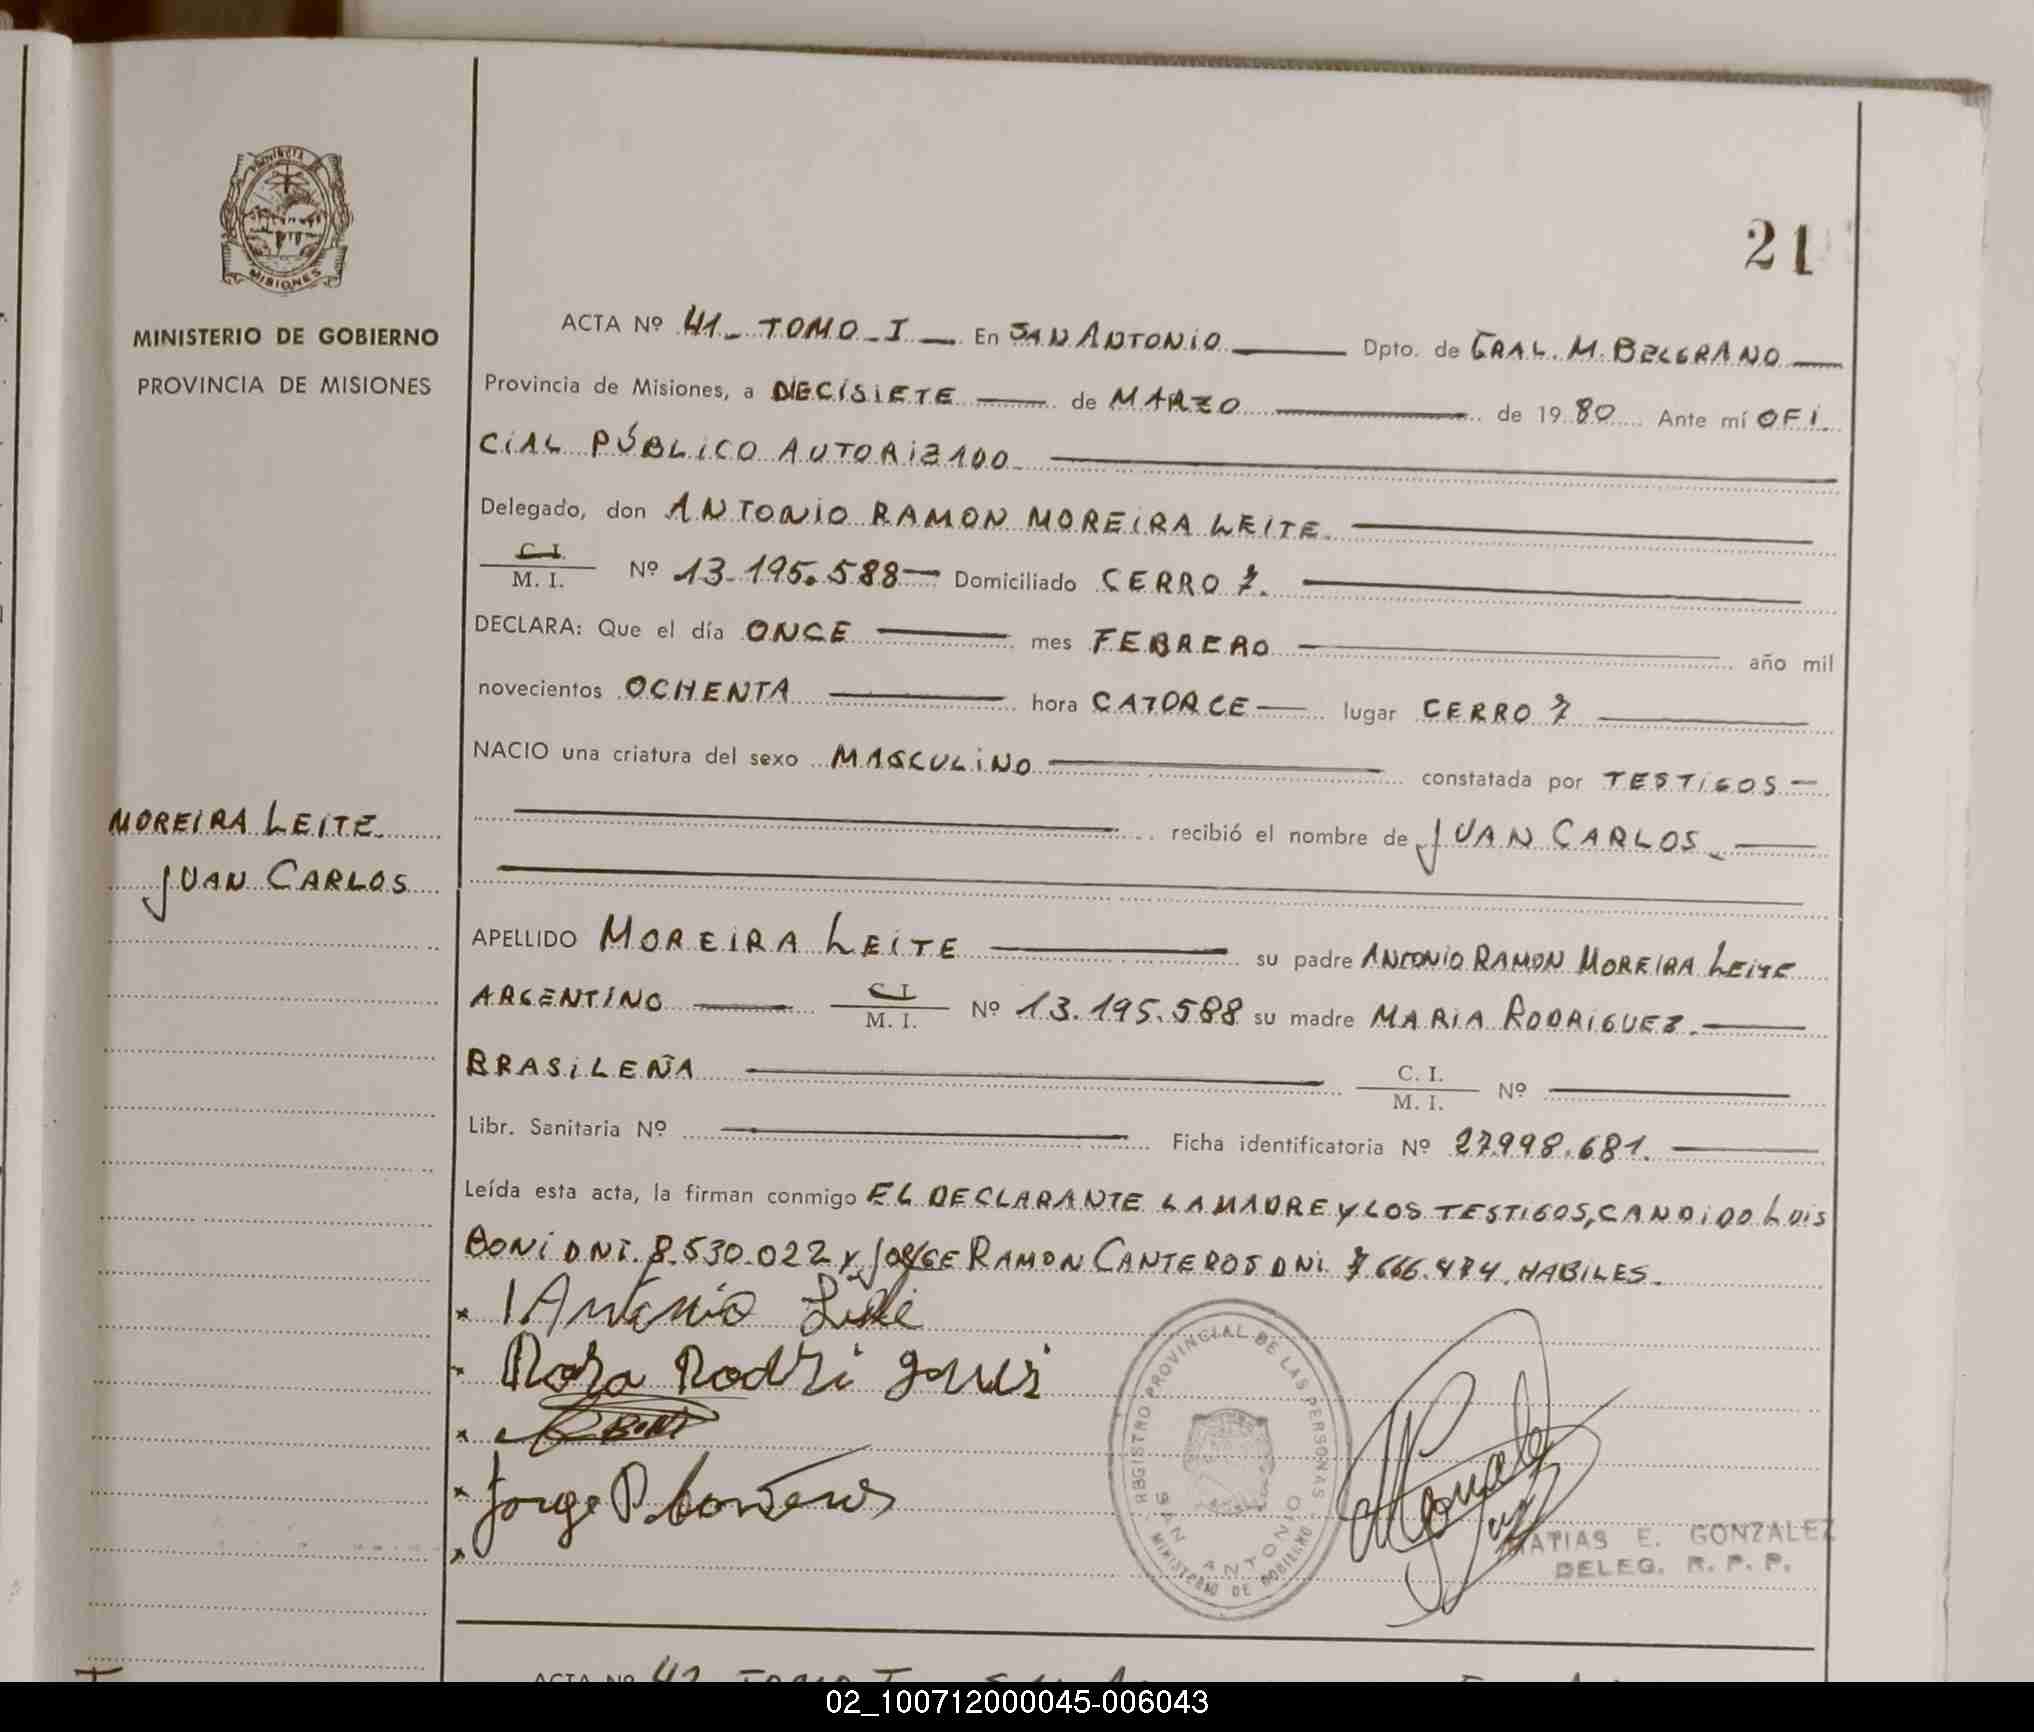 21
PROVINCIA
MISIONES
MINISTERIO DE GOBIERNO
PROVINCIA DE MISIONES
MOREIRA LEITE
JUAN CARLOS
ACTA Nº 41_ TOMO_I_ En SAN ANTONIO Dpto. de GRAL. M. BELGRANO
Provincia de Misiones, a DIECISIETE de MARZO de 1980 Ante mí OFI
CIAL PÚBLICO AUTORIZADO
Delegado, don ANTONIO RAMON MOREIRA LEITE.
C. I. M. I. Nº 13.195.588 Domiciliado CERRO 7.
DECLARA: Que el día ONCE mes FEBRERO año mil
novecientos OCHENTA hora CATORCE lugar CERRO 7
NACIO una criatura del sexo MASCULINO constatada por TESTIGOS
recibió el nombre de JUAN CARLOS
APELLIDO MOREIRA LEITE su padre ANTONIO RAMON MOREIRA LEITE
ARGENTINO C. I. M. I. Nº 13.195.588 su madre MARIA RODRIGUEZ.
BRASILEÑA C. I. M. I. Nº
Libr. Sanitaria Nº Ficha identificatoria Nº 27.998.681.
Leída esta acta, la firman conmigo EL DECLARANTE LA MADRE Y LOS TESTIGOS, CANDIDO LUIS
BONI DNI. 8.530.022 Y JORGE RAMON CANTEROS DNI 7.666.474. HABILES.
Antonio
BONI
Jorge R. Canteros
REGISTRO PROVINCIAL DE LAS PERSONAS
SAN ANTONIO
MINISTERIO DE GOBIERNO
MATIAS E. GONZALEZ
DELEG. R. P. P.
ACTA Nº 42
02_100712000045-006043